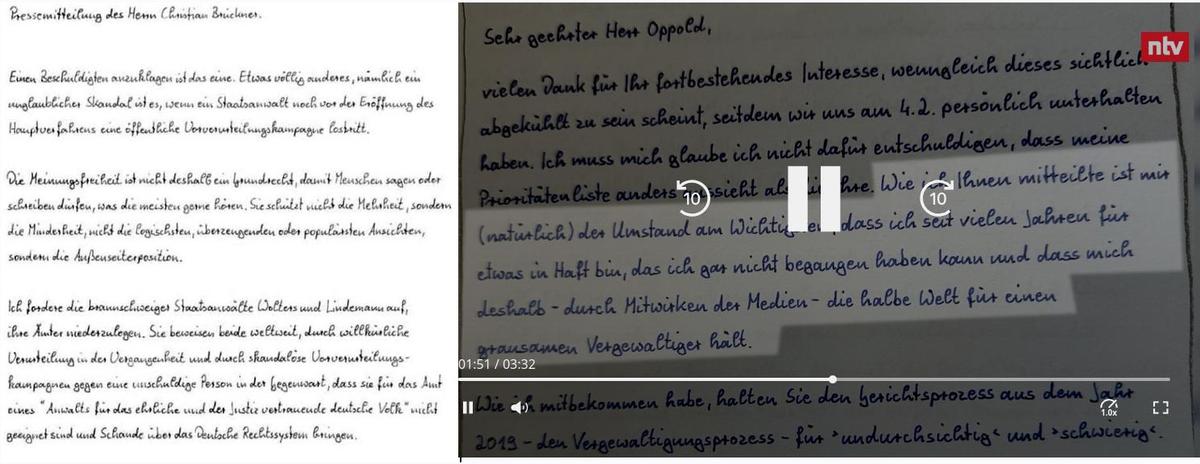 Pressemitteilung des Herrn Christian Brückner.
Einen Beschuldigten anzuklagen ist das eine. Etwas völlig anderes, nämlich ein
unglaublicher Skandal ist es, wenn ein Staatsanwalt noch vor der Eröffnung des
Hauptverfahrens eine öffentliche Vorverurteilungskampagne lostritt.
Die Meinungsfreiheit ist nicht deshalb ein Grundrecht, damit Menschen sagen oder
schreiben dürfen, was die meisten gerne hören. Sie schützt nicht die Mehrheit, sondern
die Minderheit, nicht die logischsten, überzeugenden oder populärsten Ansichten,
sondern die Außenseiterposition.
Ich fordere die braunschweiger Staatsanwälte Wolters und Lindemann auf,
ihre Ämter niederzulegen. Sie beweisen beide weltweit, durch willkürliche
Verurteilung in der Vergangenheit und durch skandalöse Vorverurteilungs-
kampagnen gegen eine unschuldige Person in der Gegenwart, dass sie für das Amt
eines "Anwalts für das ehrliche und der Justiz vertrauende deutsche Volk" nicht
geeignet sind und Schande über das Deutsche Rechtssystem bringen.
ntv
Sehr geehrter Herr Oppold,
vielen Dank für Ihr fortbestehendes Interesse, wenngleich dieses sichtlich
abgekühlt zu sein scheint, seitdem wir uns am 4.2. persönlich unterhalten
haben. Ich muss mich glaube ich nicht dafür entschuldigen, dass meine
Prioritätenliste anders Ihre. Wie ich Ihnen mitteilte ist mir
(natürlich) der Umstand am dass ich seit vielen Jahren für
etwas in Haft bin, das ich gar nicht begangen haben kann und dass mich
deshalb - durch Mitwirken der Medien - die halbe Welt für einen
grausamen Vergewaltiger hält.
10
10
01:51 / 03:32
Wie ich mitbekommen habe, halten Sie den Gerichtsprozess aus dem Jahr
1.0x
2019 - den Vergewaltigungsprozess - für >undurchsichtig< und >schwierig<.